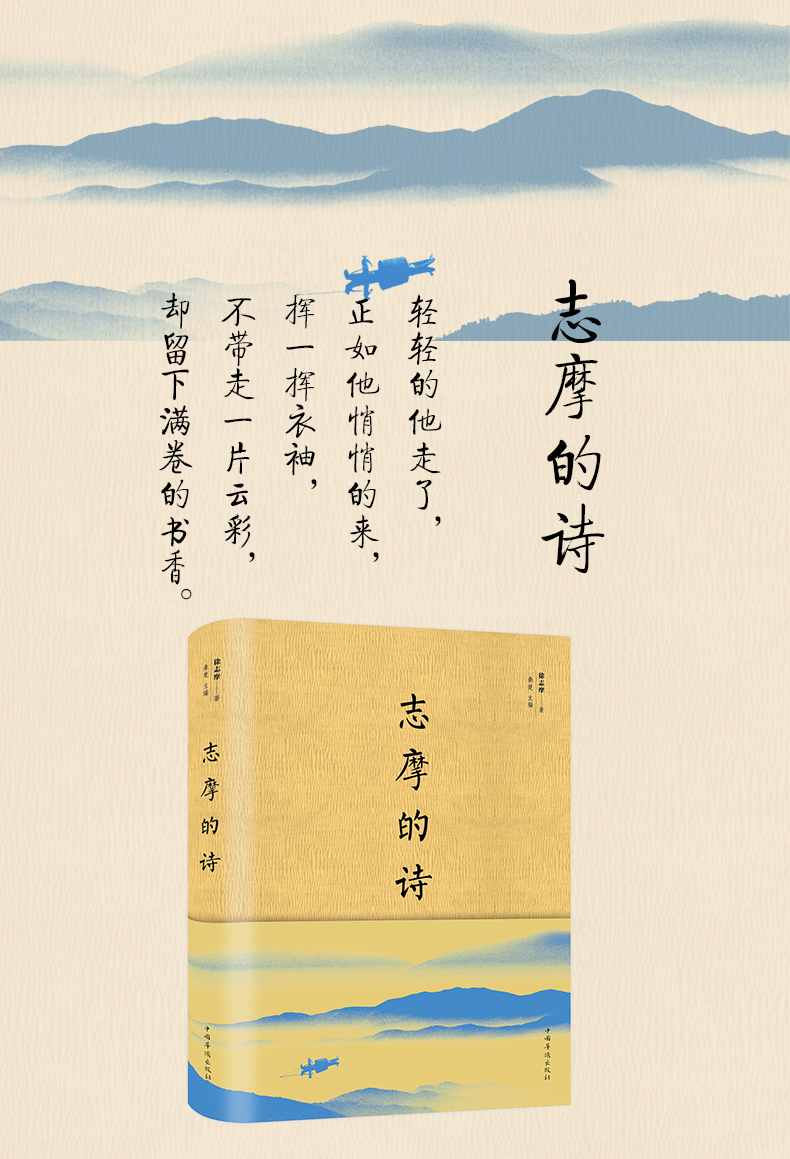 志摩的诗
轻轻的他走了，
正如他悄悄的来，
挥一挥衣袖，
不带走一片云彩，
却留下满卷的书香。
徐志摩 著
桑楚 主编
志摩的诗
徐志摩 著
桑楚 主编
志摩的诗
中国华侨出版社
中国华侨出版社